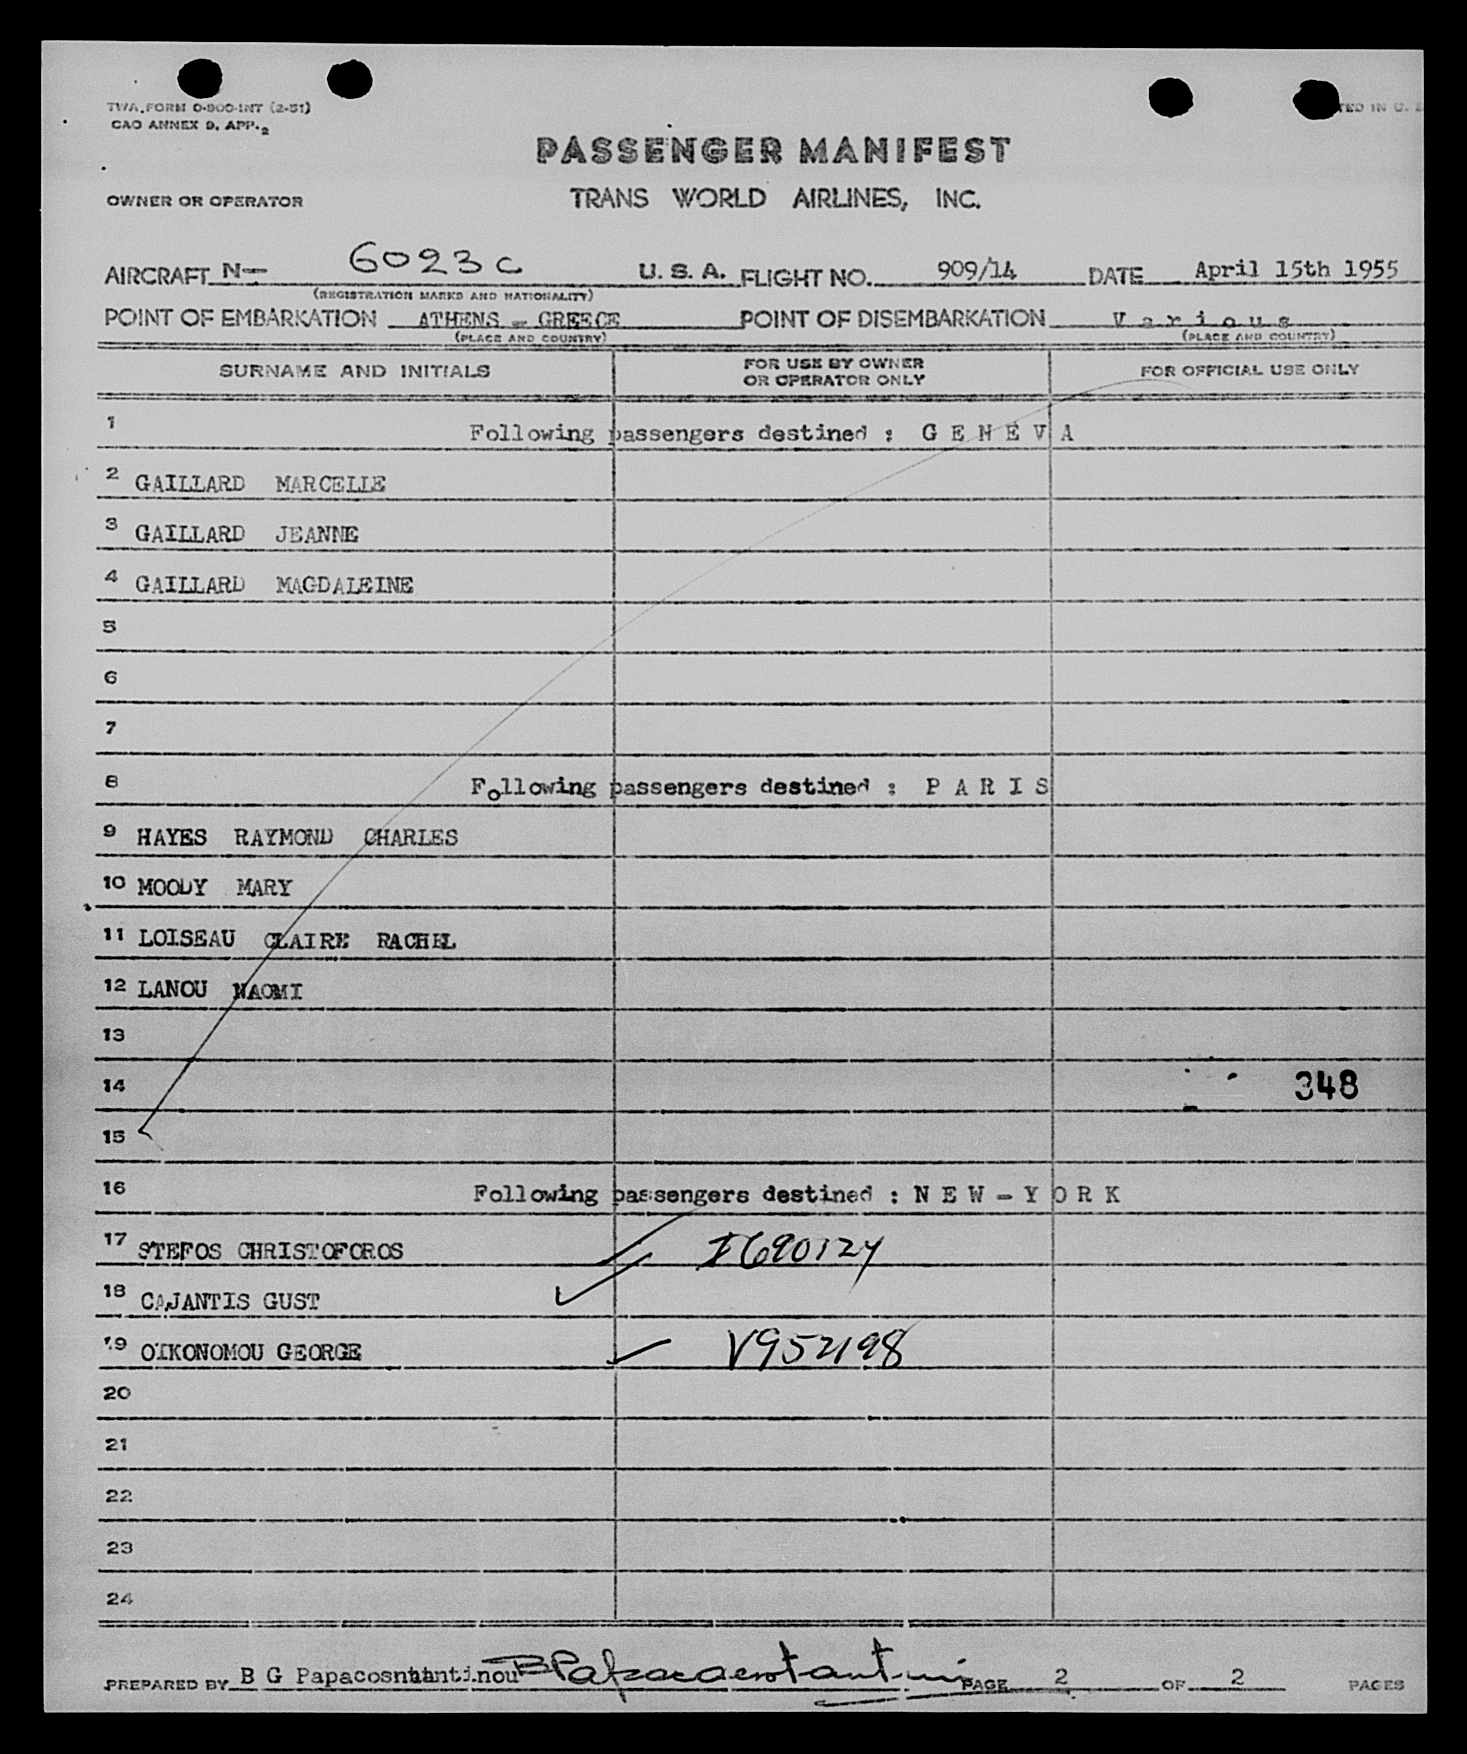 TWA.FORM O-900-INT (2-51)
CAO ANNEX 9, APP.2
TED IN U.
PASSENGER MANIFEST
OWNER OR OPERATOR
TRANS WORLD AIRLINES, INC.
AIRCRAFT N- 6023C U. S. A. FLIGHT NO. 909/14 DATE April 15th 1955
(REGISTRATION MARKS AND NATIONALITY)
POINT OF EMBARKATION ATHENS - GREECE POINT OF DISEMBARKATION Various
(PLACE AND COUNTRY) (PLACE AND COUNTRY)
SURNAME AND INITIALS FOR USE BY OWNER OR OPERATOR ONLY FOR OFFICIAL USE ONLY
1 Following passengers destined : G E N E V A
2 GAILLARD MARCELLE
3 GAILLARD JEANNE
4 GAILLARD MAGDALEINE
5
6
7
8 Following passengers destined : P A R I S
9 HAYES RAYMOND CHARLES
10 MOODY MARY
11 LOISEAU CLAIRE RACHEL
12 LANOU NAOMI
13
14 348
15
16 Following passengers destined : N E W - Y O R K
17 STEFOS CHRISTOFOROS I690124
18 CAJANTIS GUST
19 OIKONOMOU GEORGE V952198
20
21
22
23
24
PREPARED BY B G Papacosntantinou PAGE 2 OF 2 PAGES